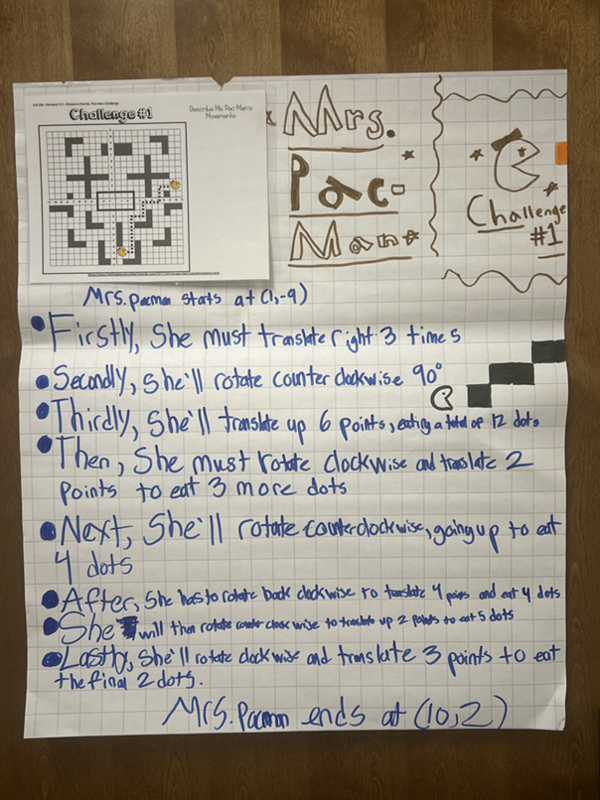 Challenge #1
Describe Ms. Pac-Man's
Movements
Mrs.
Pac-
Man
Challenge
#1
Mrs. pacman starts at (1,-9)
Firstly, She must translate right 3 times
Secondly, She'll rotate counter clockwise 90°
Thirdly, She'll translate up 6 points, eating a total of 12 dots
Then, She must rotate clockwise and translate 2
points to eat 3 more dots
Next, She'll rotate counterclockwise, going up to eat
4 dots
After, She has to rotate back clockwise to translate 4 points and eat 4 dots
She will then rotate counter clock wise to translate up 2 points to eat 5 dots
Lastly, She'll rotate clockwise and translate 3 points to eat
the final 2 dots.
Mrs. Pacman ends at (10,2)